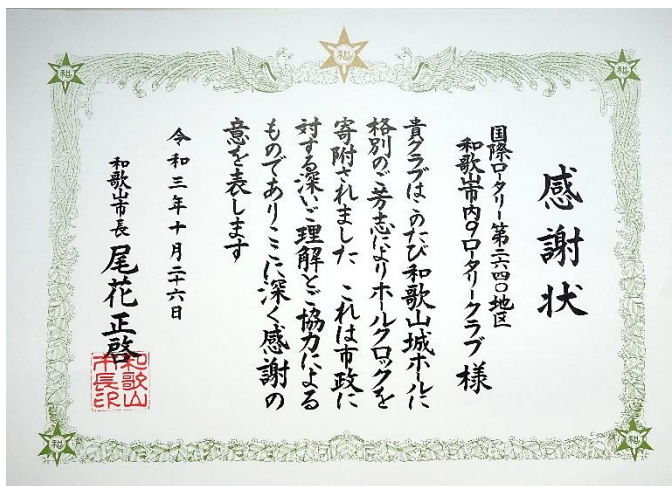 感謝状
国際ロータリー第二六四〇地区
和歌山市内9ロータリークラブ 様
貴クラブはこのたび和歌山城ホールに
格別のご芳志によりホールクロックを
寄附されました これは市政に
対する深いご理解とご協力による
ものでありここに深く感謝の
意を表します
令和三年十月二十六日
和歌山市長 尾花正啓
和歌山
市長印